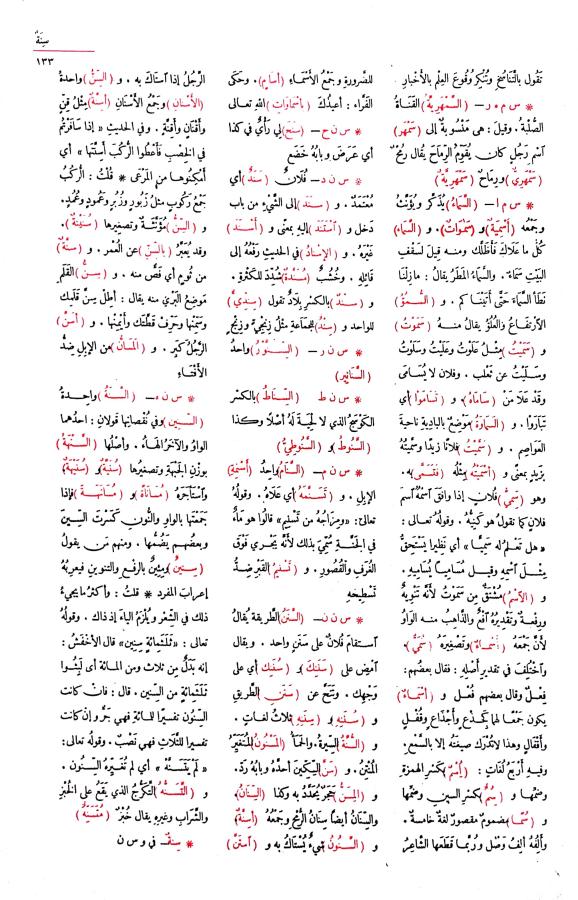 سنة
١٣٣
تقول بالتناسخ وتُنكر وقوع العلم بالأخبار
* س م هـ ر – (السَّمْهَرِيَّة) القناة
الصُّلبة. وقيل: هي منسوبة إلى (سَمْهَر)
اسم رجل كان يُقوّم الرماح يقال رمح
(سَمْهَرِيّ) ورماح (سَمْهَرِيَّة)
* س م ا – (السَّماء) يذكر ويؤنث
وجمعه (أَسْمِيَة) و (سَمَوات). و (السَّماء)
كل ما علاك فأظلك ومنه قيل لسقف
البيت سماء. والسماء المطر يقال: مازلنا
نطأ السماء حتى أتيناكم. و (السُّمُوّ)
الارتفاع والعلو يقال منه (سَمَوْت)
و (سَمَيْت) مثل علوت وعليت وسلوت
وسليت عن ثعلب. وفلان لا يُسامَى
وقد علا من (ساماه). و (تساموا) أي
تباروا. و (السَّماوة) موضع بالبادية ناحية
العواصم. و (سمَّيت) فلانا زيدا وسميته
بزيد بمعنى و (أسميته) مثله (فتسمى) به.
وهو (سَمِيّ) فلان إذا وافق اسمه اسم
فلان كما تقول هو كنيه. وقوله تعالى:
« هل تعلم له سميا » أي نظيرا يستحق
مثل اسمه وقيل مساميا يساميه.
و (الاسم) مشتق من سموت لأنه تنويه
ورفعة وتقديره افع والذاهب منه الواو
لأن جمعه (أسماء) وتصغيره (سُمَيّ).
واختلف في تقدير أصله: فقال بعضهم:
فِعل وقال بعضهم فُعل و (أسماء)
يكون جمعا لهما كجذع وأجذاع وقفل
وأقفال وهذا لا تدرك صيغته إلا بالسمع.
وفيه أربع لغات: (اسم) بكسر الهمزة
وضمها و (سم) بكسر السين وضمها
و (سُما) مضموم مقصور لغة خامسة.
وألفه ألف وصل وربما قطعها الشاعر
للضرورة وجمع الأسماء (أسام). وحكى
الفراء: أعيذك (بأسماوات) الله تعالى
* س ن ح – (سَنَح) لي رأي في كذا
أي عرض وبابه خضع
* س ن د – فلان (سَنَد) أي
معتمد. و (سند) إلى الشيء من باب
دخل و (استند) إليه بمعنى و (أسند)
غيره. و (الإسناد) في الحديث رفعه إلى
قائله. وخشب (مسندة) شدد للكثرة.
و (سند) بالكسر بلاد تقول (سندي)
للواحد و (سند) للجماعة مثل زنجي وزنج
* س ن ر – (السِّنَّور) واحد
(السنانير)
* س ن ط (السناط) بالكسر
الكوسج الذي لا لحية له أصلا وكذا
(السَّنوط) و (السَّنوطي)
* س ن م – (السَّنام) واحد (أسنمة)
الإبل. و (تسنمه) أي علاه. وقوله
تعالى: «ومزاجه من تسنيم» قالوا هو ماء
في الجنة سمي بذلك لأنه يجري فوق
الغرف والقصور. و (تسنيم) القبر ضد
تسطيحه
* س ن ن – (السَّنَن) الطريقة يقال
استقام فلان على سنن واحد. ويقال
امض على (سَنَنك) و (سُنَنك) أي على
وجهك. وتنح عن (سنن) الطريق
و (سننه) و (سننه) ثلاث لغات.
و (السُّنَّة) السيرة. والحمأ (المسنون) المتغير
المنتن. و (سن) السكين أحده وبابه رد.
و (المسن) حجر يحدد به وكذا (السنان).
والسنان أيضا سنان الرمح وجمعه (أسنة)
و (السنون) شيء يُستاك به و (استن)
الرجل إذا استاك به. و (السن) واحدة
(الأسنان) وجمع الأسنان (أسنة) مثل قن
وأقنان وأقنة. وفي الحديث « إذا سافرتم
في الخصب فأعطوا الركب أسنتها » أي
أمكنوها من المرعى * قلت: الركب
جمع ركوب مثل زبور وزبر وعمود وعمد.
و (السن) مؤنثة وتصغيرها (سنينة).
وقد يُعبَّر (بالسن) عن العمر. و (سنة)
من ثوم أي فص منه. و (سن) القلم
موضع البري منه يقال: أطل سن قلمك
وسمنها وحرف قطتك وأيمنها. و (أسن)
الرجل كبر. و (المسان) من الإبل ضد
الأفتاء
* س ن ه – (السنة) واحدة
(السنين) وفي نقصانها قولان: أحدهما
الواو والآخر الهاء. وأصلها (السنهة)
بوزن الجبهة وتصغيرها (سنية) و (سنيهة)
واستأجره (مساناة) و (مسانهة) فإذا
جمعتها بالواو والنون كسرت السين
وبعضهم يضمها. ومنهم من يقول
(سنين) ومئين بالرفع والتنوين فيعربه
إعراب المفرد * قلت: وأكثر ما يجيء
ذلك في الشعر ويلزم الياء إذ ذاك. وقوله
تعالى: « ثلثمائة سنين » قال الأخفش:
إنه بدل من ثلاث ومن المائة أي لبثوا
ثلثمائة من السنين. قال: فان كانت
السنون تفسيرا للمائة فهي جر وإن كانت
تفسيرا للثلاث فهي نصب. وقوله تعالى:
« لم يتسنه » أي لم تغيره السنون.
و (التسنه) التكرج الذي يقع على الخبز
والشراب وغيره يقال خبز (متسنه)
* سنة في و س ن